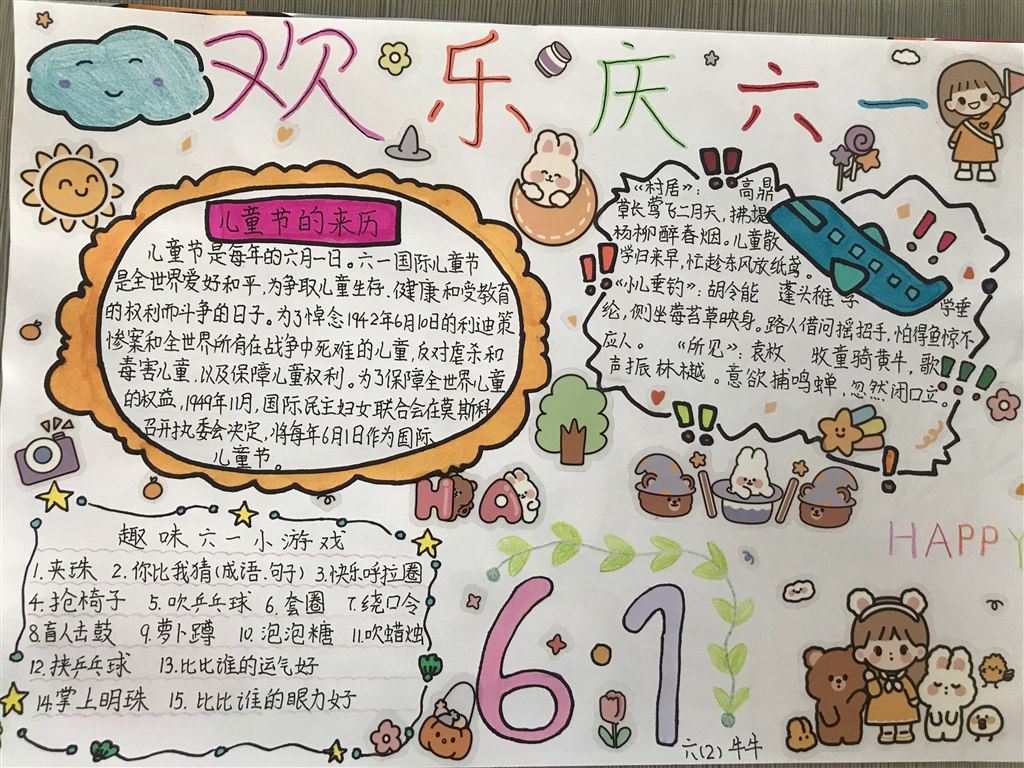 欢乐庆六一
儿童节的来历
儿童节是每年的六月一日。六一国际儿童节
是全世界爱好和平,为争取儿童生存、健康和受教育
的权利而斗争的日子。为了悼念1942年6月10日的利迪策
惨案和全世界所有在战争中死难的儿童,反对虐杀和
毒害儿童,以及保障儿童权利。为了保障全世界儿童
的权益,1949年11月,国际民主妇女联合会在莫斯科
召开执委会决定,将每年6月1日作为国际
儿童节。
《村居》: 高鼎
草长莺飞二月天,拂堤
杨柳醉春烟。儿童散
学归来早,忙趁东风放纸鸢。
《小儿垂钓》:胡令能 蓬头稚 学 学垂
纶,侧坐莓苔草映身。路人借问摇招手,怕得鱼惊不
应人。 《所见》:袁枚 牧童骑黄牛,歌
声振林樾。意欲捕鸣蝉,忽然闭口立。
HA
趣味六一小游戏
1.夹珠 2.你比我猜(成语.句子) 3.快乐呼拉圈
4.抢椅子 5.吹乒乓球 6.套圈 7.绕口令
8.盲人击鼓 9.萝卜蹲 10.泡泡糖 11.吹蜡烛
12.挟乒乓球 13.比比谁的运气好
14.掌上明珠 15.比比谁的眼力好
HAPPY
6·1
六(2)牛牛